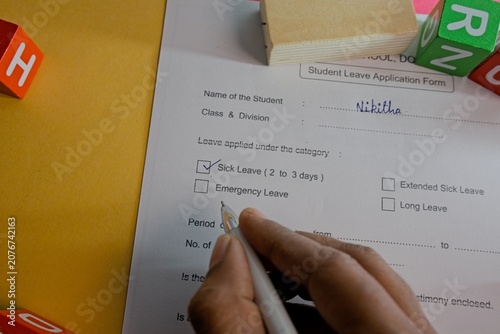 H
R N
SCHOOL, DO
Student Leave Application Form
Name of the Student : Nikitha
Class & Division :
Leave applied under the category :
Sick Leave ( 2 to 3 days )
Extended Sick Leave
Emergency Leave
Long Leave
Period from to
No. of
Is the timony enclosed.
Adobe Stock | #2076742163